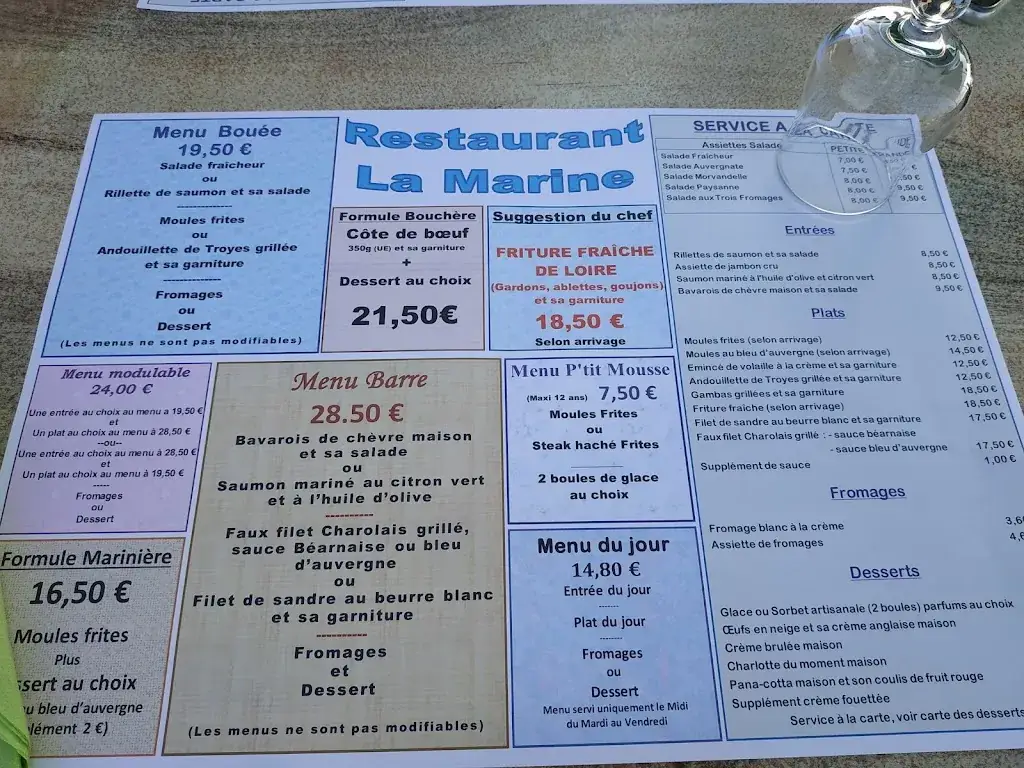 Restaurant
La Marine
Menu Bouée
19,50 €
Salade fraîcheur
ou
Rillette de saumon et sa salade
--------------
Moules frites
ou
Andouillette de Troyes grillée
et sa garniture
---------------
Fromages
ou
Dessert
(Les menus ne sont pas modifiables)
Formule Bouchère
Côte de bœuf
350g (UE) et sa garniture
+
Dessert au choix
21,50€
Suggestion du chef
FRITURE FRAÎCHE
DE LOIRE
(Gardons, ablettes, goujons)
et sa garniture
18,50 €
Selon arrivage
Menu modulable
24,00 €
Une entrée au choix au menu a 19,50 €
et
Un plat au choix au menu à 28,50 €
--ou--
Une entrée au choix au menu à 28,50 €
et
Un plat au choix au menu à 19,50 €
-----
Fromages
ou
Dessert
Formule Marinière
16,50 €
Moules frites
Plus
ssert au choix
u bleu d’auvergne
lément 2 €)
Menu Barre
28.50 €
Bavarois de chèvre maison
et sa salade
ou
Saumon mariné au citron vert
et à l’huile d’olive
----------
Faux filet Charolais grillé,
sauce Béarnaise ou bleu
d’auvergne
ou
Filet de sandre au beurre blanc
et sa garniture
----------
Fromages
et
Dessert
(Les menus ne sont pas modifiables)
Menu P'tit Mousse
(Maxi 12 ans) 7,50 €
Moules Frites
ou
Steak haché Frites
2 boules de glace
au choix
Menu du jour
14,80 €
Entrée du jour
-------
Plat du jour
-------
Fromages
ou
Dessert
Menu servi uniquement le Midi
du Mardi au Vendredi
SERVICE A LA CARTE
Assiettes Salade PETITE
Salade Fraîcheur 7,00 €
Salade Auvergnate 7,50 €
Salade Morvandelle 8,00 €
Salade Paysanne 8,00 € 9,50 €
Salade aux Trois Fromages 8,00 € 9,50 €
Entrées
Rillettes de saumon et sa salade 8,50 €
Assiette de jambon cru 8,50 €
Saumon mariné à l'huile d'olive et citron vert 8,50 €
Bavarois de chèvre maison et sa salade 9,50 €
Plats
Moules frites (selon arrivage) 12,50 €
Moules au bleu d'auvergne (selon arrivage) 14,50 €
Emincé de volaille à la crème et sa garniture 12,50 €
Andouillette de Troyes grillée et sa garniture 12,50 €
Gambas grillées et sa garniture 18,50 €
Friture fraîche (selon arrivage) 18,50 €
Filet de sandre au beurre blanc et sa garniture 17,50 €
Faux filet Charolais grillé : - sauce béarnaise
- sauce bleu d'auvergne 17,50 €
Supplément de sauce 1,00 €
Fromages
Fromage blanc à la crème 3,6
Assiette de fromages 4,
Desserts
Glace ou Sorbet artisanale (2 boules) parfums au choix
Œufs en neige et sa crème anglaise maison
Crème brulée maison
Charlotte du moment maison
Pana-cotta maison et son coulis de fruit rouge
Supplément crème fouettée
Service à la carte, voir carte des desserts